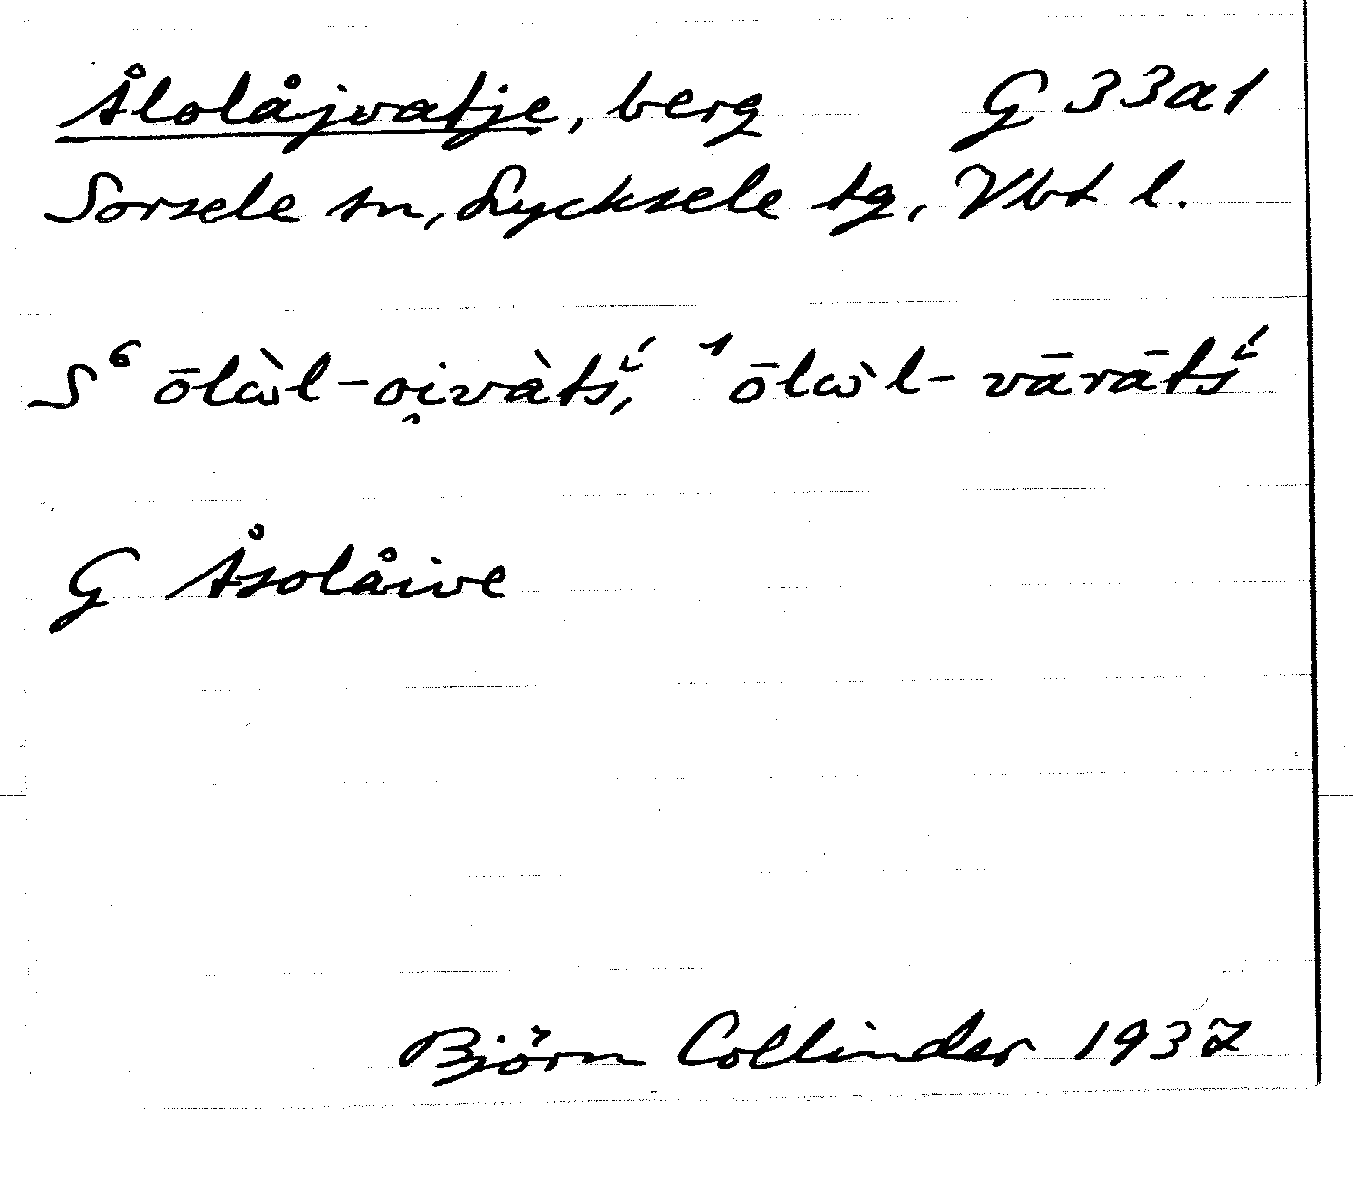 Ålolåjvatje, berg G 33a1
Sorsele sn, Lycksele tg, Vbt l.
S⁶ ōlὼl-oi̭vàtsᶤ́, ¹ ōlὼl-vārātsᶤ́
G Åsolåive
Björn Collinder 1937